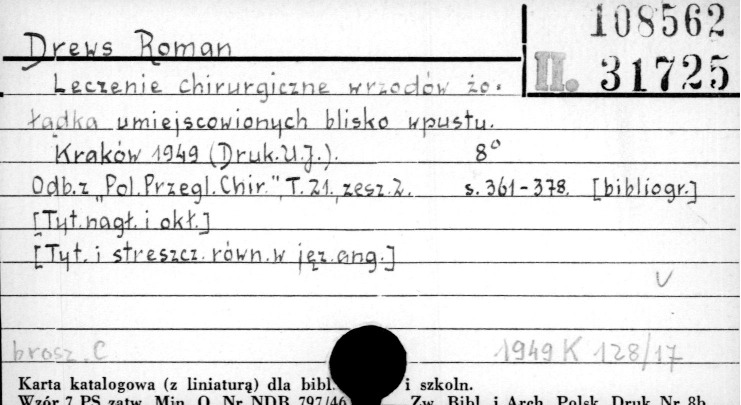 108562
Drews Roman
II. 31725
Leczenie chirurgiczne wrzodów żo-
łądka umiejscowionych blisko wpustu.
Kraków 1949 (Druk. U.J.). 8°
Odb. z "Pol. Przegl. Chir.", T. 21, zesz. 2. s. 361-378. [bibliogr.]
[Tyt. nagł. i okł.]
[Tyt. i streszcz. równ. w jęz. ang.]
brosz. C 1949 K 128/17
Karta katalogowa (z liniaturą) dla bibl. i szkoln.
Wzór 7 PS zatw. Min. O. Nr NDB 797/46 Zw. Bibl. i Arch. Polsk. Druk Nr 8b